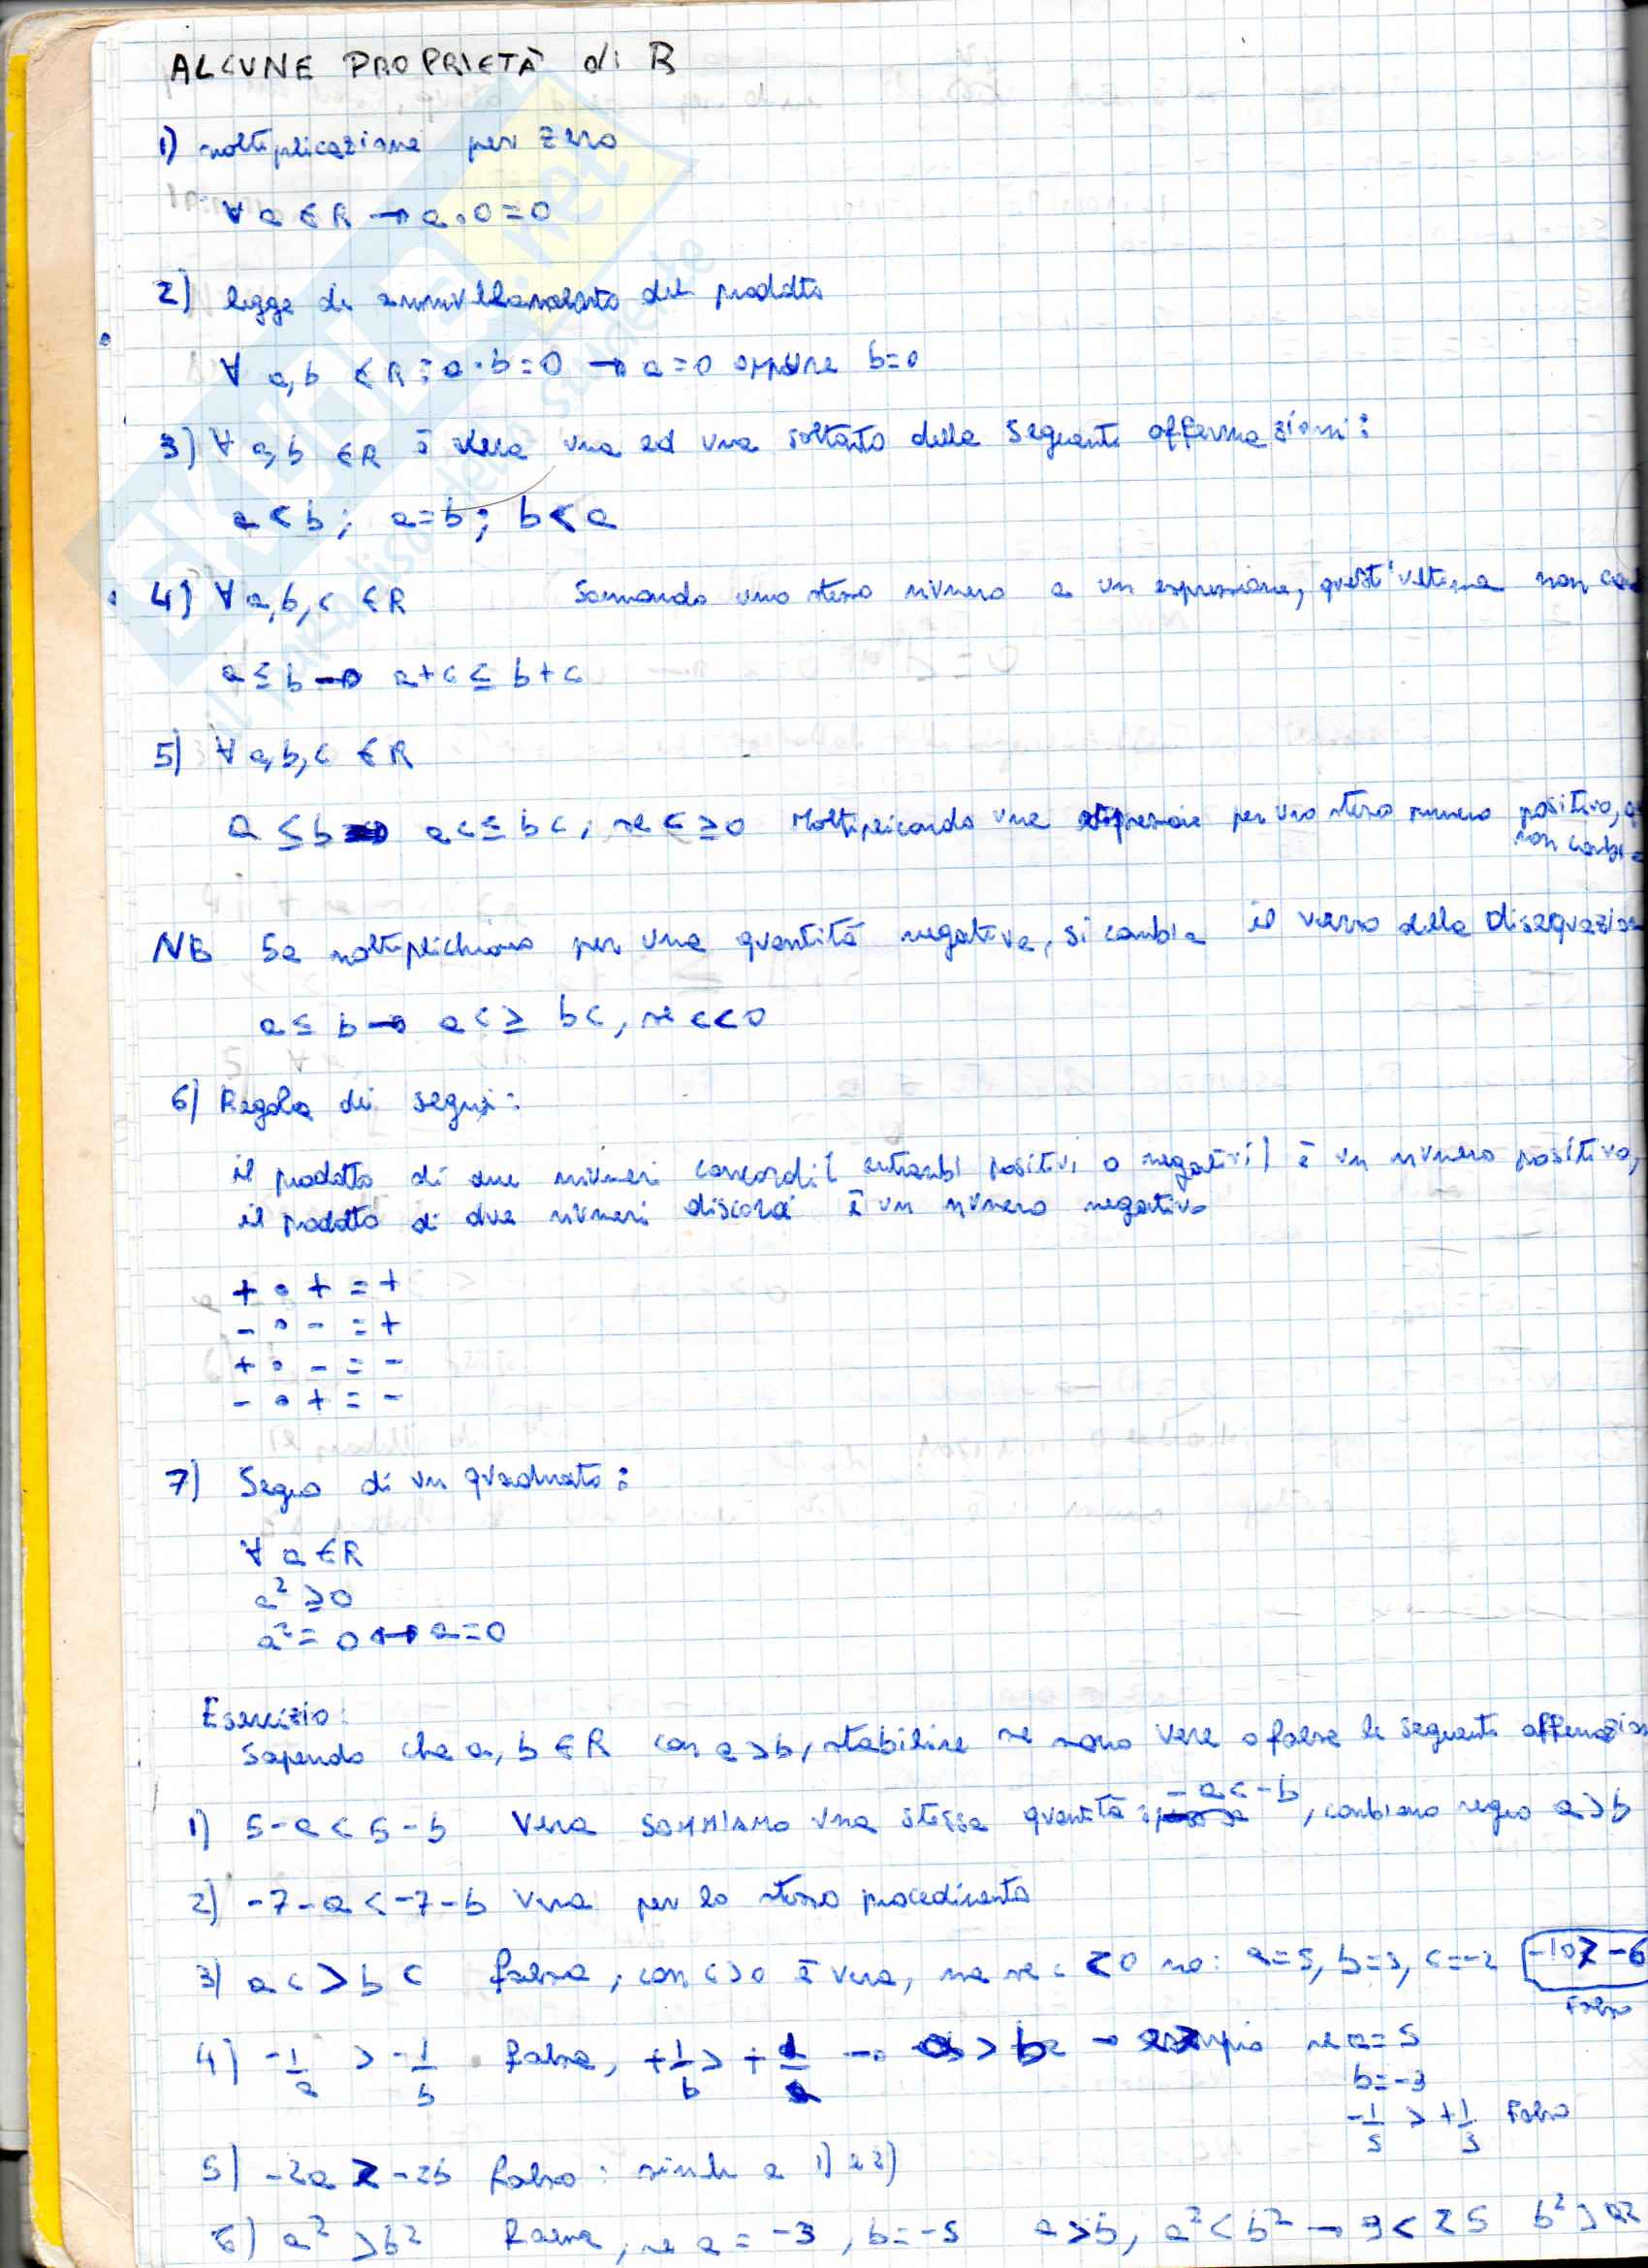 ALCUNE PROPRIETÀ di R
1) moltiplicazione per zero
∀ a ∈ R → a · 0 = 0
2) legge di annullamento del prodotto
∀ a,b ∈ R : a · b = 0 → a = 0 oppure b = 0
3) ∀ a,b ∈ R è vera una ed una soltanto delle seguenti affermazioni:
a < b ; a = b ; b < a
4) ∀ a,b,c ∈ R Sommando uno stesso numero a un espressione, quest'ultima non
a ≤ b → a + c ≤ b + c
5) ∀ a,b,c ∈ R
a ≤ b → ac ≤ bc, se c ≥ 0 Moltiplicando una espressione per uno stesso numero positivo,
non cambia
NB Se moltiplichiamo per una quantità negativa, si cambia il verso della disequazione
a ≤ b → ac ≥ bc, se c < 0
6) Regola dei segni:
il prodotto di due numeri concordi ( entrambi positivi o negativi ) è un numero positivo,
il prodotto di due numeri discordi è un numero negativo
+ · + = +
- · - = +
+ · - = -
- · + = -
7) Segno di un quadrato:
∀ a ∈ R
a² ≥ 0
a² = 0 ↔ a = 0
Esercizio:
Sapendo che a, b ∈ R con a > b, stabilire se sono vere o false le seguenti affermazioni
1) 5 - a < 5 - b Vera SOMMIAMO una stessa quantità - a < - b, cambiamo segno a > b
2) -7 - a < -7 - b Vera per lo stesso procedimento
3) ac > bc falsa, con c > 0 è vera, ma se c < 0 no: a = 5, b = 3, c = -2 -10 > -6
Falso
4) -1/a > -1/b falsa, +1/b > +1/a → a > b → esempio se a = 5
b = -3
-1/5 > +1/3 Falso
5) -2a > -2b falso: simile a 1) e 2)
6) a² > b² Falsa, se a = -3, b = -5 a > b, a² < b² → 9 < 25 b² > a²
skuola.net
il paradiso dello studente